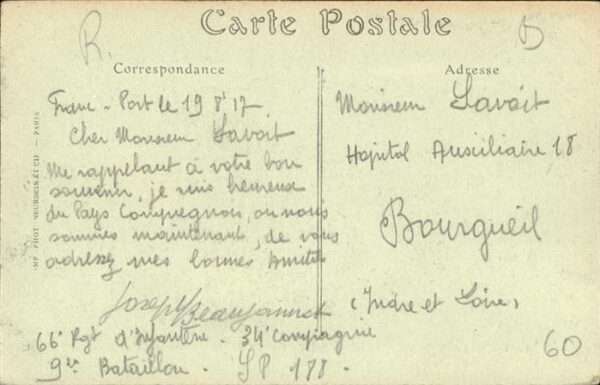 Carte Postale
R.
D
Correspondance
Adresse
Franc-Port le 19 8 17
Cher Monsieur Lavoit
Me rappelant à votre bon
souvenir, je suis heureux
du Pays Compiegnois, ou nous
sommes maintenant, de vous
adressez mes bonnes Amitiés
Joseph
66e Rgt d'Infanterie - 34e Compiagnie
9e Bataillon - SP 178.
Monsieur Lavoit
Hopital Auxiliaire 18
Bourgueil
(Indre et Loire)
60
PHOT NEURDEIN ET CIE - PARIS